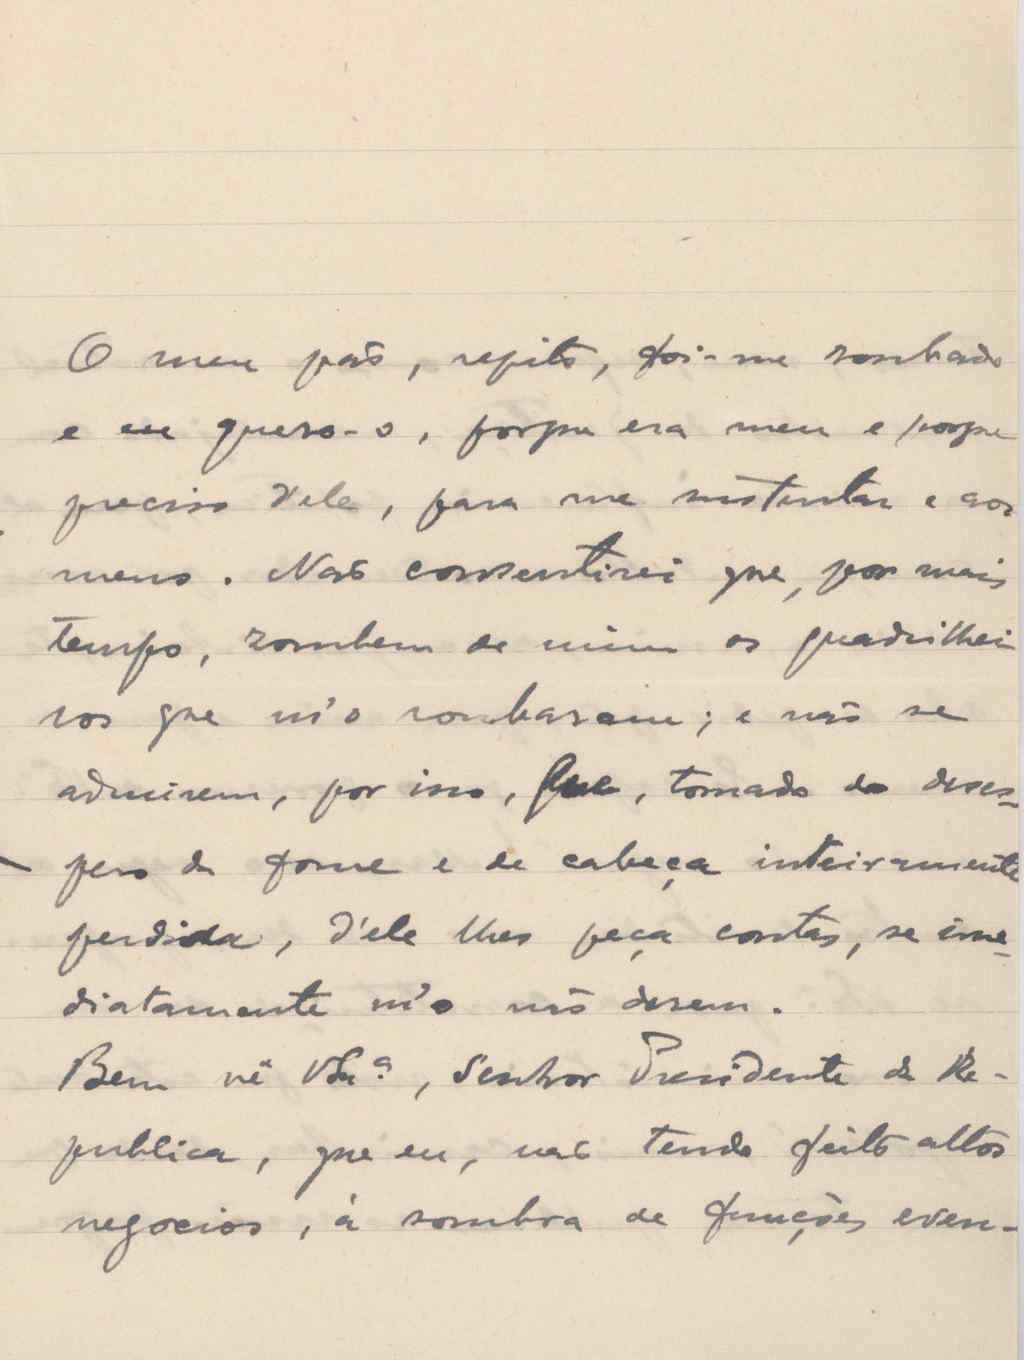 O meu pão, repito, foi-me roubado
e eu quero-o, porque era meu e porque
preciso d'ele, para me sustentar e aos
meus. Não consentirei que, por mais
tempo, zombem de mim os quadrilhei
ros que m'o roubaram; e não se
admirem, por isso, que, tomado do deses-
pero da fome e de cabeça inteiramente
perdida, d'ele lhes peça contas, se ime-
diatamente m'o não derem.
Bem vê V. Exª, Senhor Presidente da Re-
publica, que eu, não tendo feito altos
negocios, á sombra de funções even-